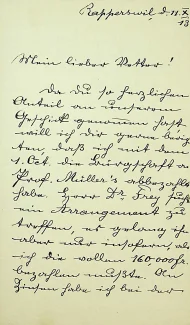 Rapperswil, d. 11. X
13
Mein lieber Vetter!
Da du so herzlichen
Anteil an unserem
Geschick genommen hast
will ich dir gerne berich
ten daß ich mit dem
1. Oct. die Bürgschaft a
Prof. Müller's abbezahlt
habe. Herr Dr. Frey
ein Arrangement zu
treffen, es gelang i
aber nur insofern, als
ich die vollen 160 000 fr.
bezahlen mußte. Die
Zinsen habe ich bei der